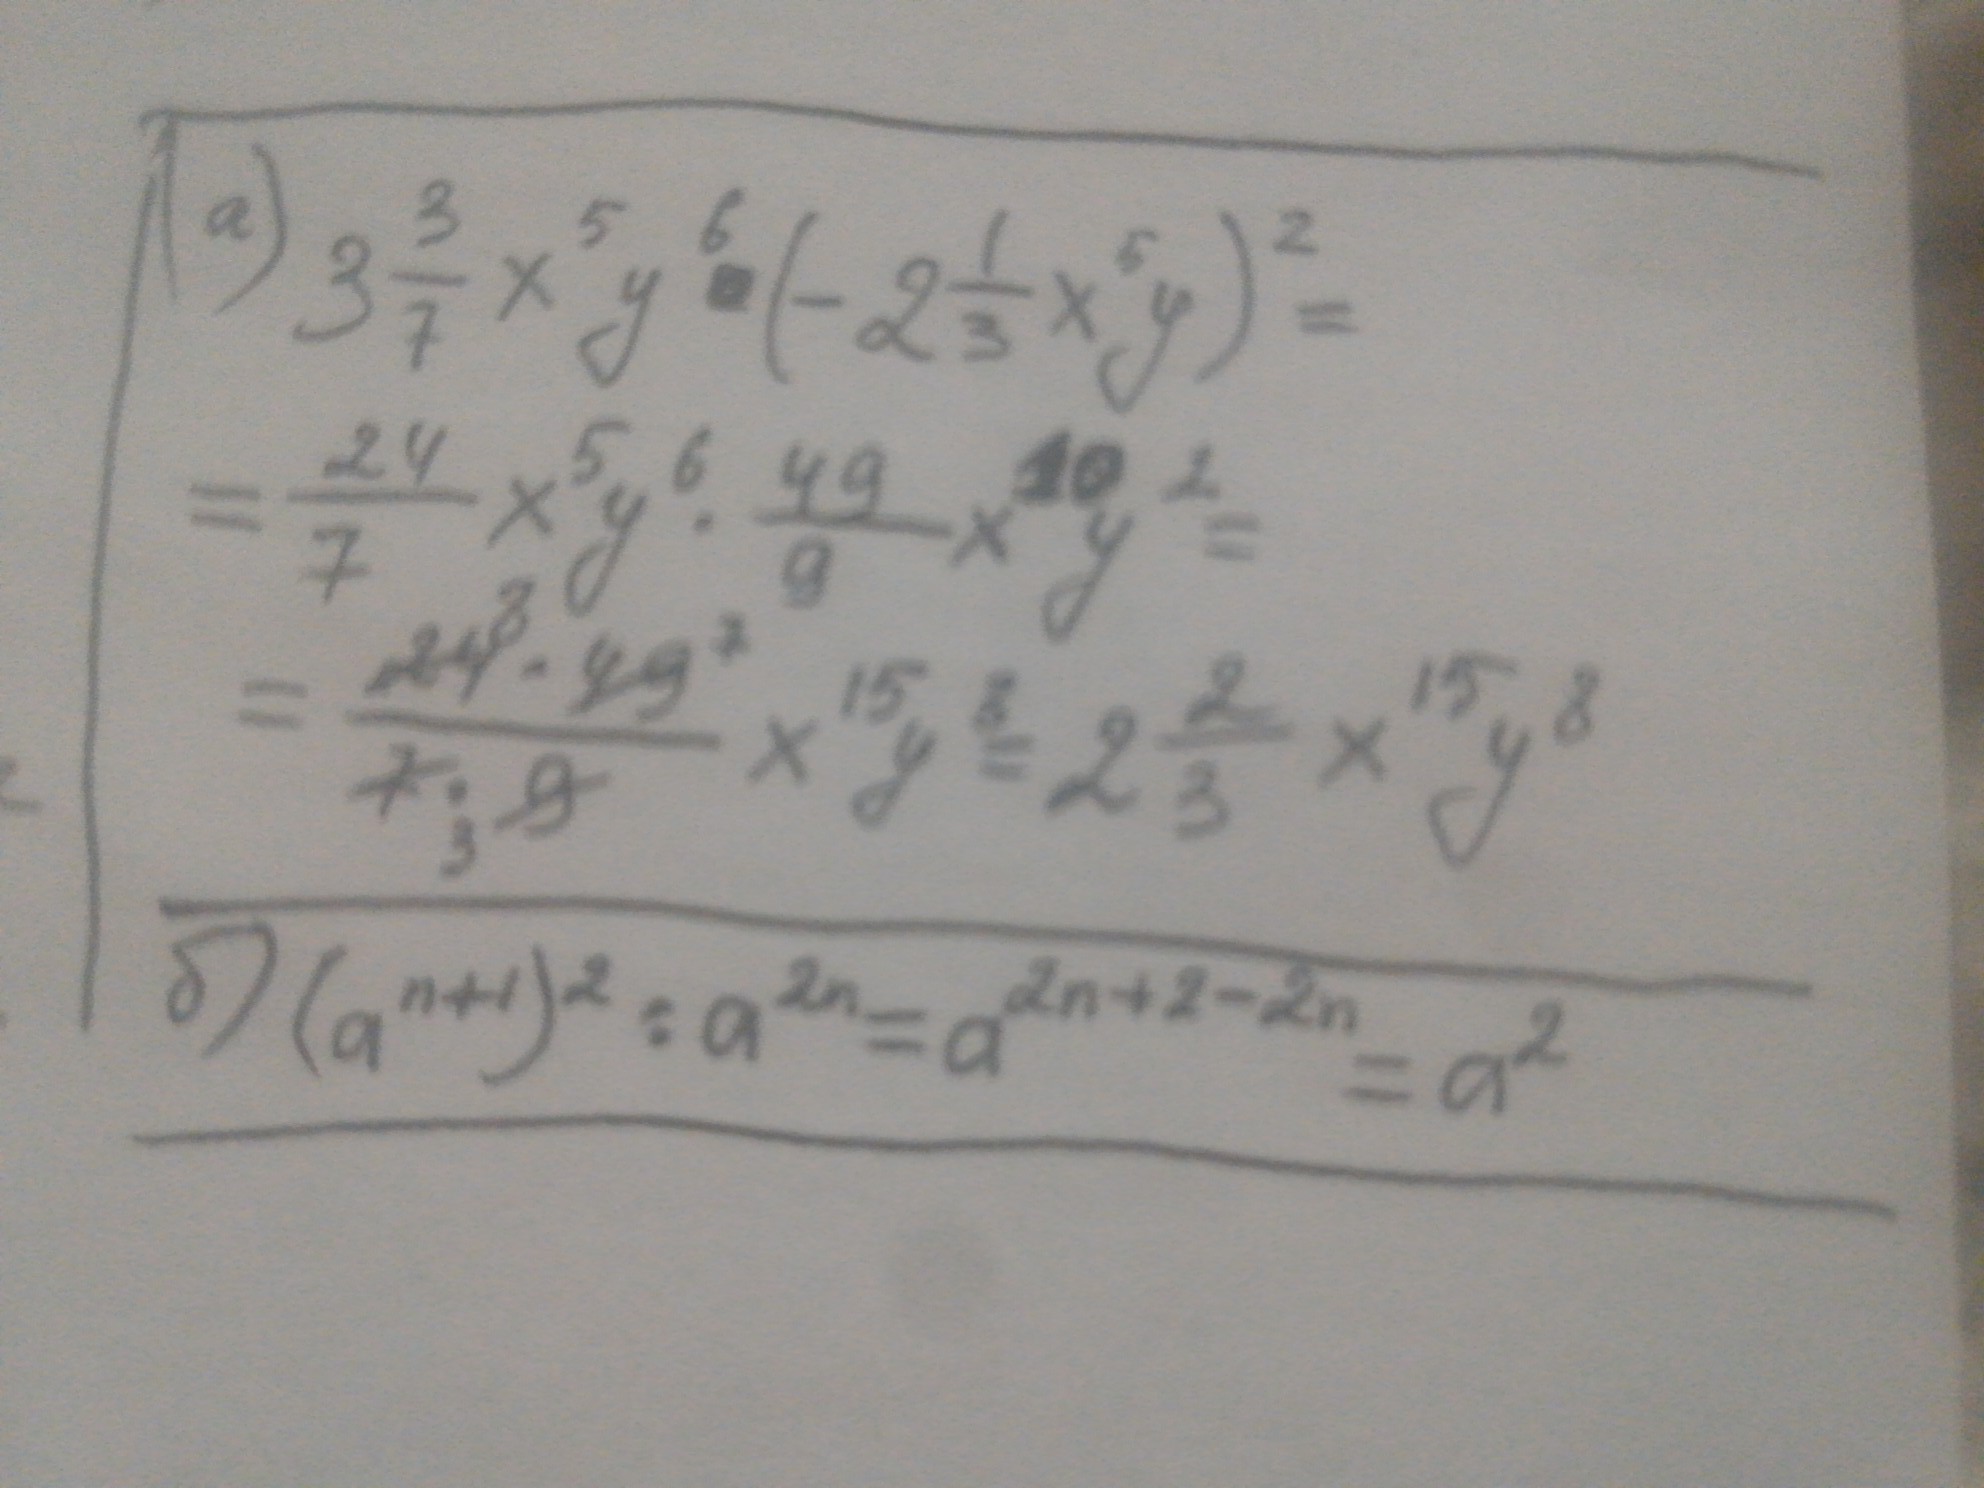 а) 3 3/7 x⁵y⁶ · (-2 1/3 x⁵y)² =
= 24/7 x⁵y⁶ · 49/9 x¹⁰y² =
= 24⁸ · 49⁷ / 7 · ₃9 x¹⁵y⁸ = 2 2/3 x¹⁵y⁸
б) (aⁿ⁺¹)² : a²ⁿ = a²ⁿ⁺²⁻²ⁿ = a²